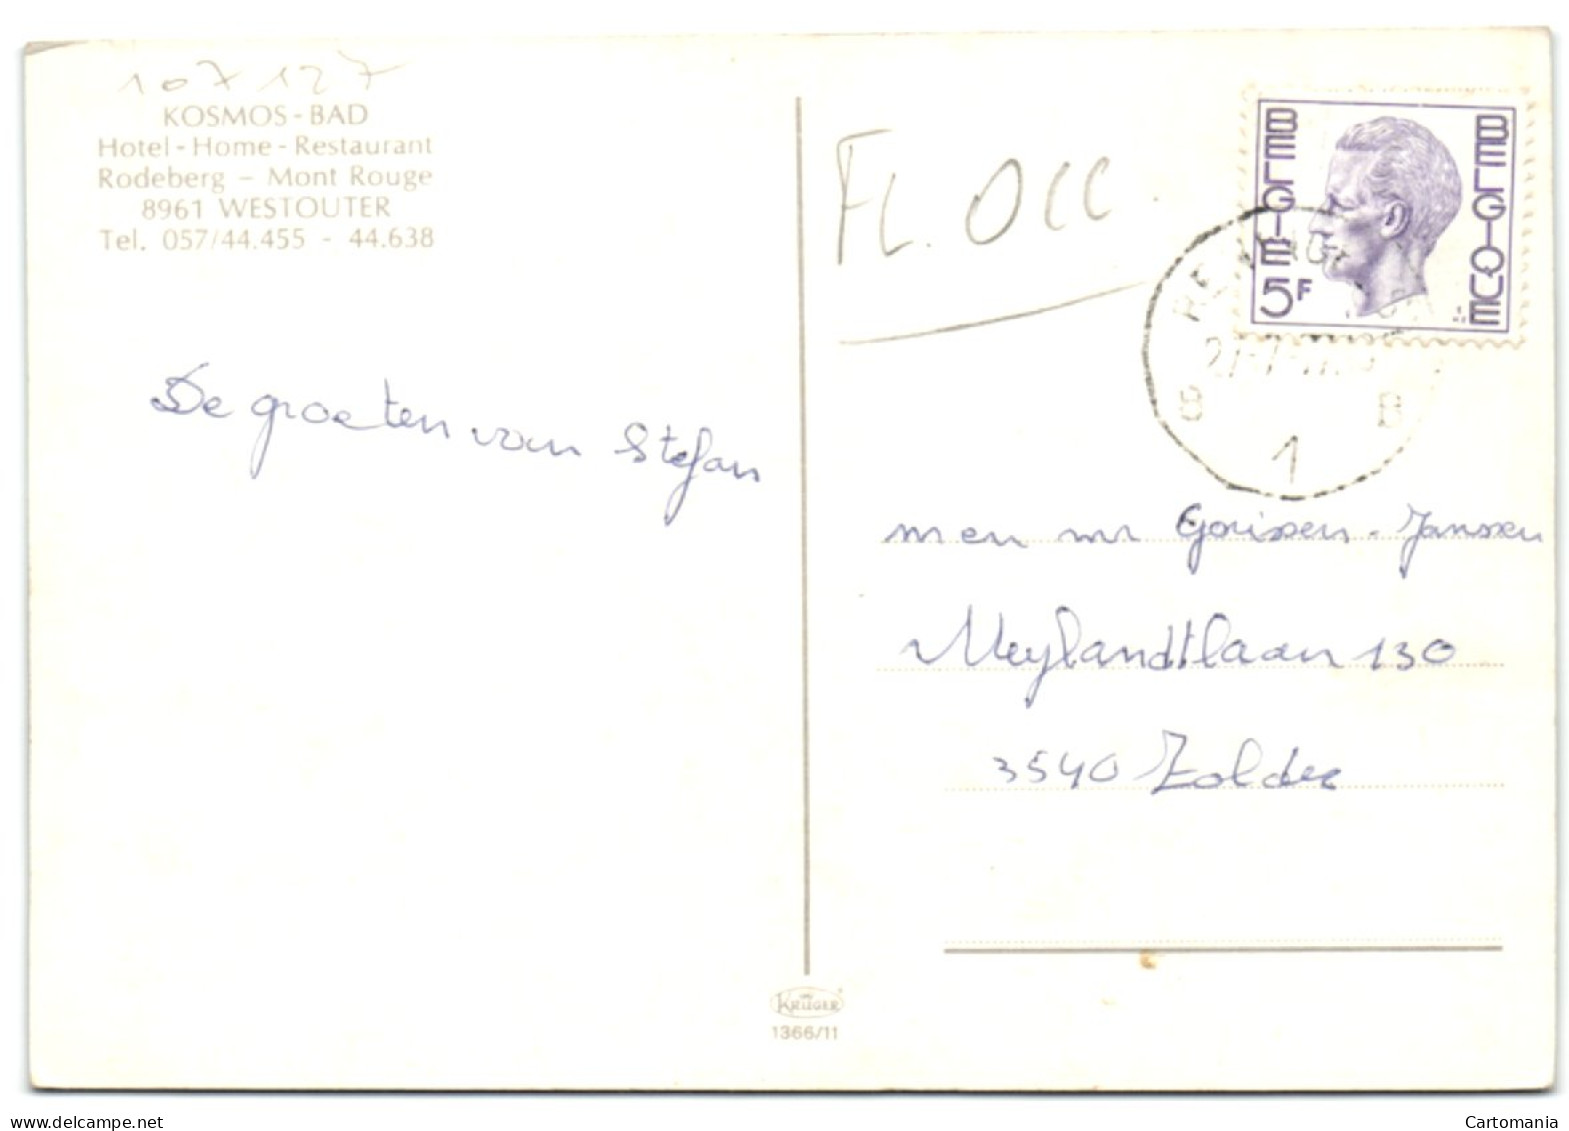 107127
KOSMOS - BAD
Hotel - Home - Restaurant
Rodeberg – Mont Rouge
8961 WESTOUTER
Tel. 057/44.455 - 44.638
FL. OCC
BELGIE
5F
BELGIQUE
B
B
1
De groeten van Stefan
m en mr Gorissen - Janssen
Meylandtlaan 130
3540 Zolder
KRÜGER
1366/11
www.delcampe.net
Cartomania